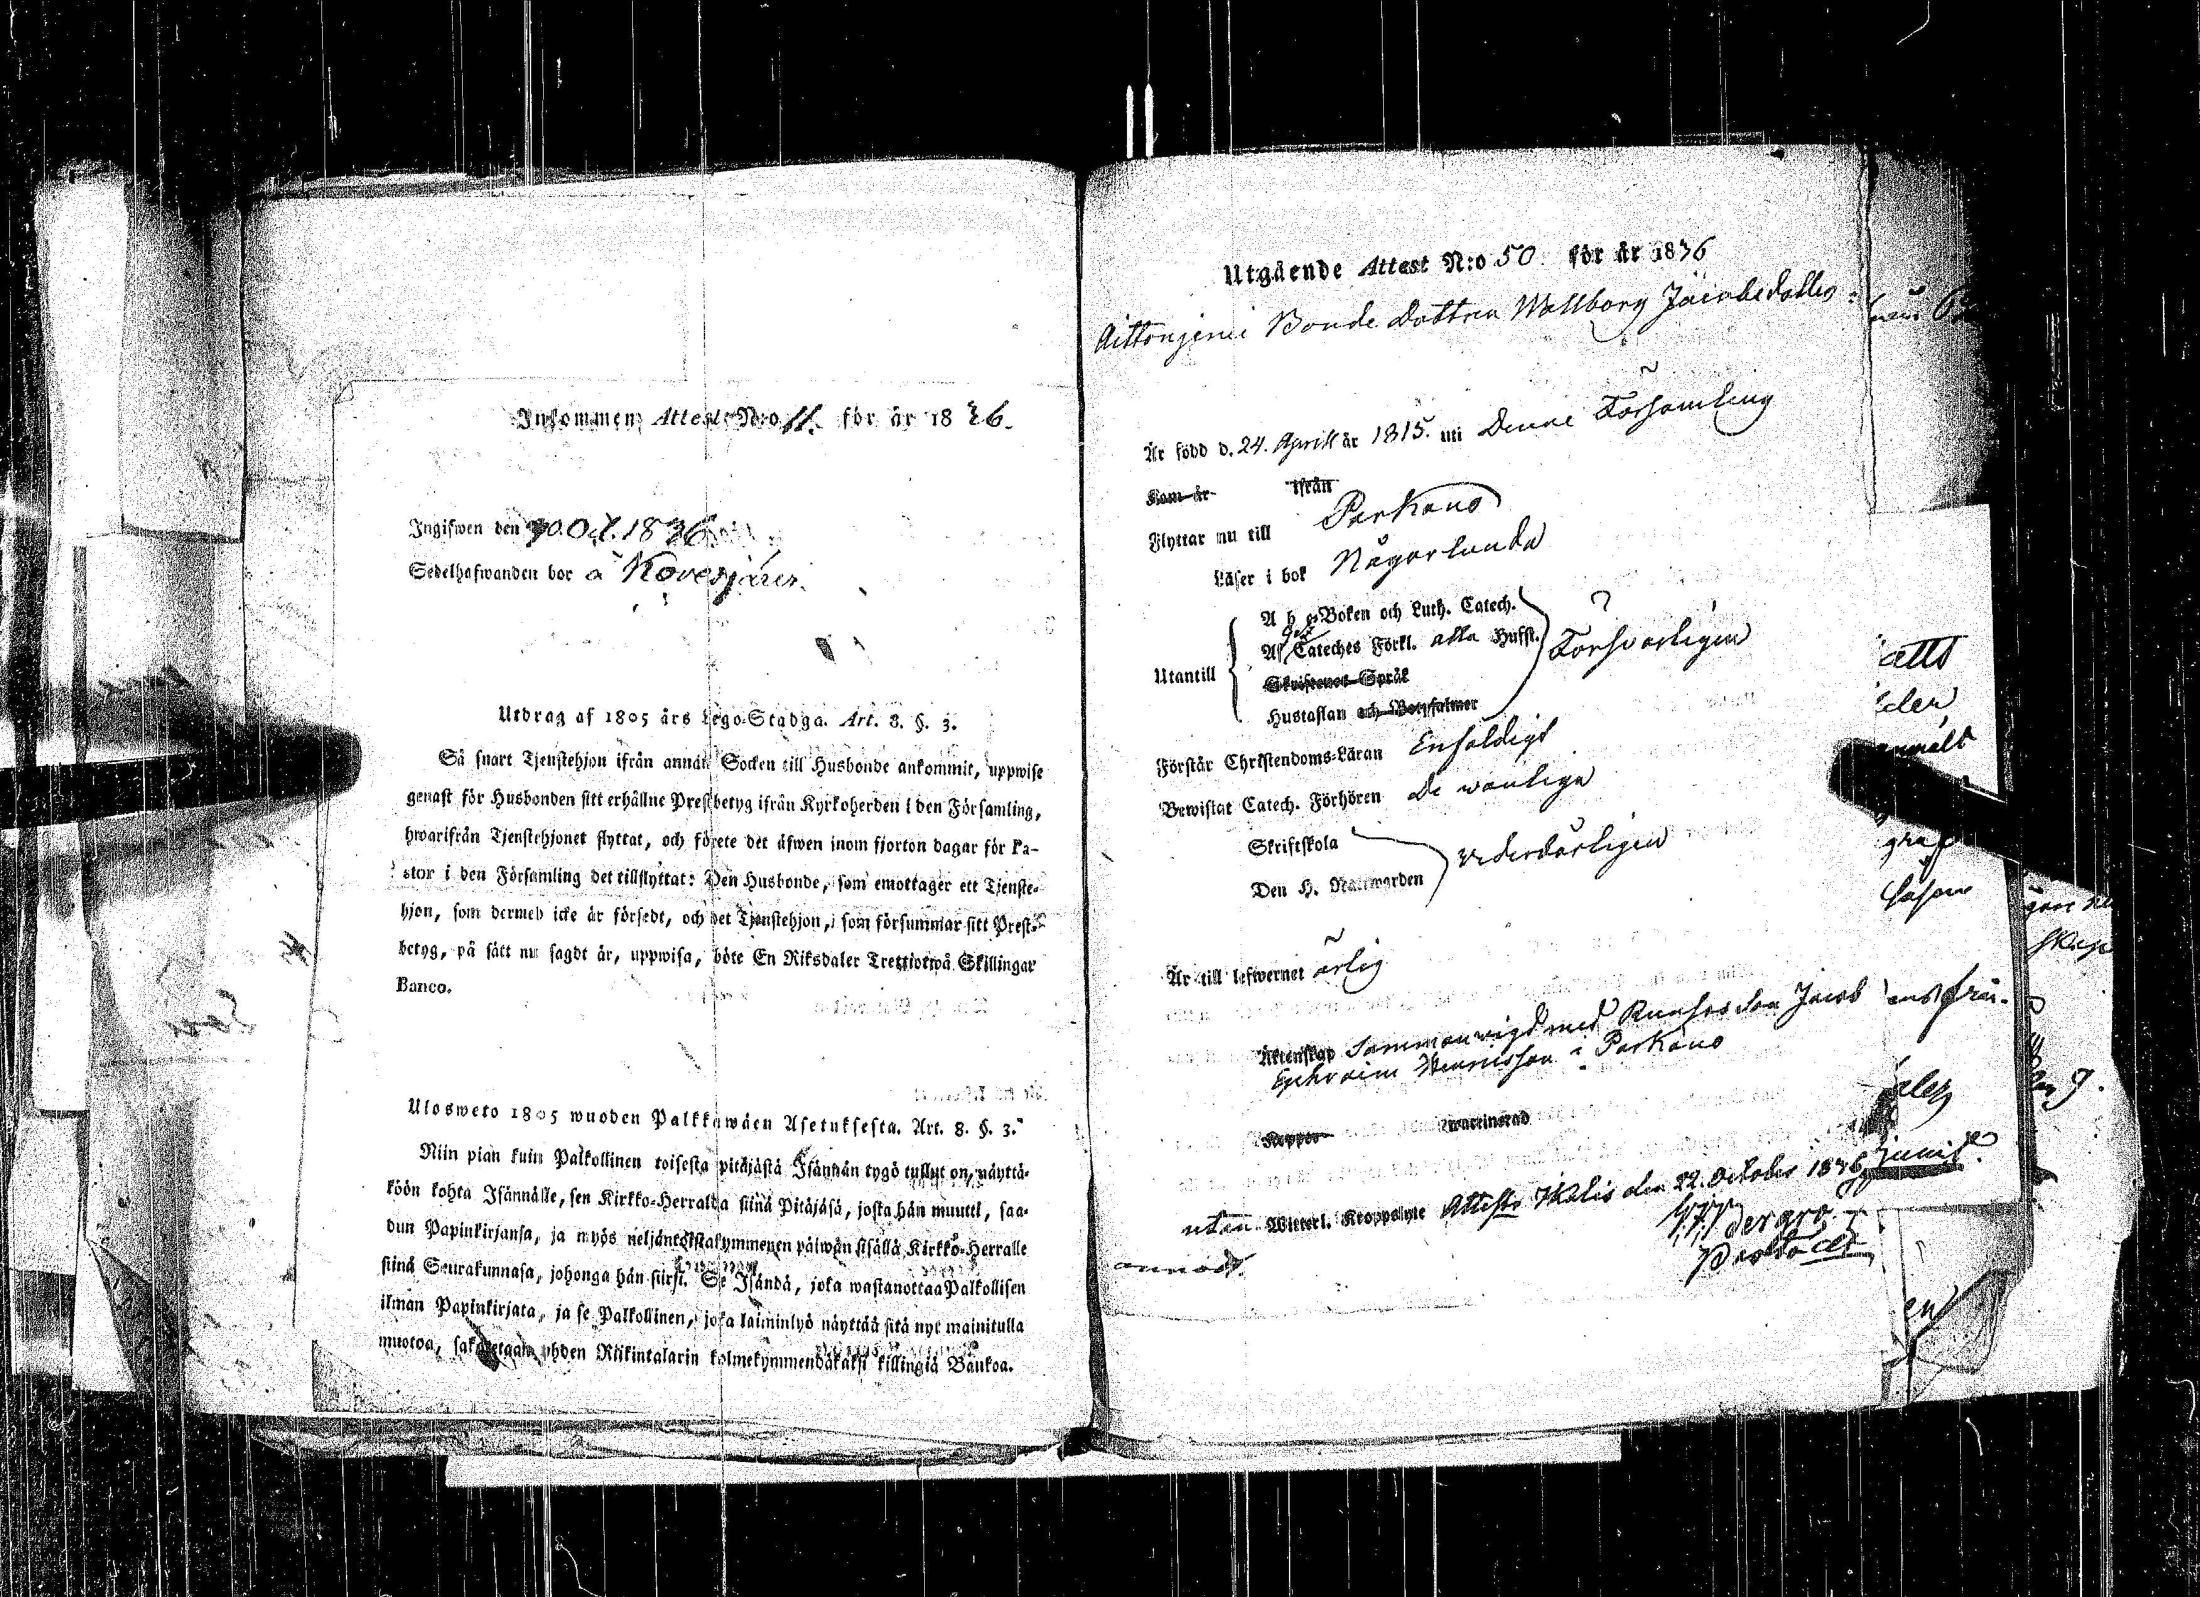 Inkommen Attest N:o 11. för år 1836.
Ingifwen den 30. Oct. 1836
Sedelhafwanden bor å Kovesjärvi.
Utdrag af 1805 års Lego-Stadga. Art. 8. §. 3.
Så snart Tjenstehjon ifrån annan Socken till Husbonde ankommit, uppwise
genast för Husbonden sitt erhållne Prestbetyg ifrån Kyrkoherden i den Församling,
hwarifrån Tjenstehjonet flyttat, och förete det äfwen inom fjorton dagar för Pa-
stor i den Församling det tillflyttat: Den Husbonde, som emottager ett Tjenste-
hjon, som dermed icke är försedt, och det Tjenstehjon, som försummar sitt Prest-
betyg, på sätt nu sagdt är, uppwisa, böte En Riksdaler Trettiotwå Skillingar
Banco.
Ulosweto 1805 wuoden Palkkawäen Asetuksesta. Art. 8. §. 3.
Niin pian kuin Palkollinen toisesta pitäjästä Isännän tygö tullut on, näyttä-
köön kohta Isännälle, sen Kirkko-Herralda siinä Pitäjäsä, josta hän muutti, saa-
dun Papinkirjansa, ja myös neljäntoistakymmenen päiwän sisällä Kirkko-Herralle
siinä Seurakunnasa, johonga hän siirsi. Se Isändä, joka wastanottaa Palkollisen
ilman Papinkirjata, ja se Palkollinen, joka laiminlyö näyttää sitä nyt mainitulla
muotoa, sakoitetaan yhden Riikintalarin kolmekymmendäkaksi killingiä Bankoa.
Utgående Attest N:o 50 för år 1836
Bonde Dottren Wallborg Jacobsdotter
Är född d. 24. April år 1815. uti Denne Församling
Kom år ifrån
Flyttar nu till Parkano
Läser i bok Någorlunda
A b c-Boken och Luth. Catech.
Af Cateches Förkl. alla Hufst. Försvarligen
Utantill
Skriftenes Språk
Hustaflan och Botpsalmer
Förstår Christendoms-Läran Enfaldigt
Bewistat Catech. Förhören de wanliga
Skriftskola
wederbörligen
Den H. Nattwarden
Är till lefwernet ärlig
Äktenskap Sammanwigd med Jacob
Ephraim Henricsson i Parkano
Koppor waccinerad
utan Witterl. Kroppslyte Attest. Ikalis den 22. October 1836,